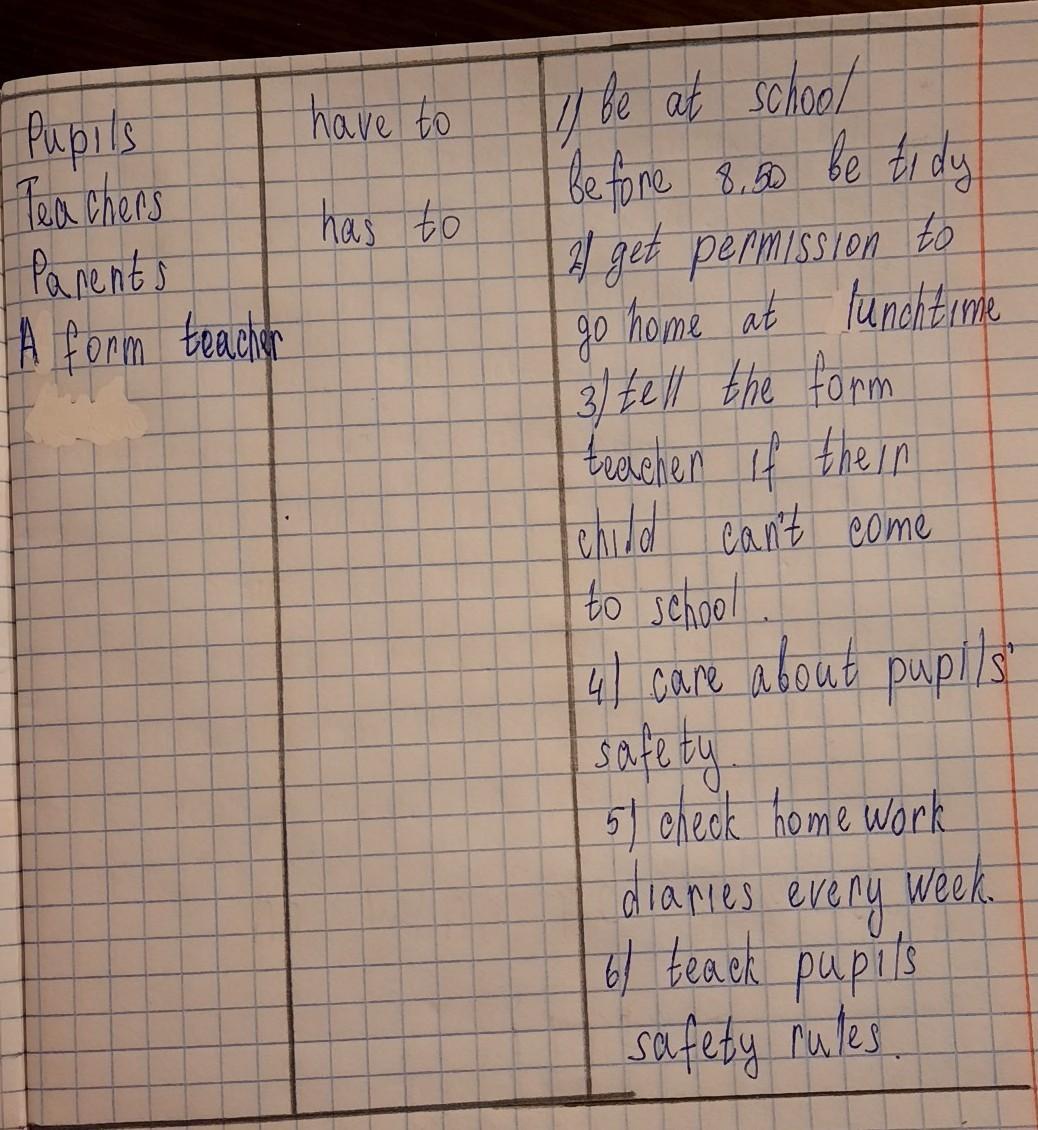 Pupils
Teachers
Parents
A form teacher
have to
has to
1) be at school
before 8.50 be tidy
2) get permission to
go home at lunchtime
3) tell the form
teacher if their
child can't come
to school.
4) care about pupils'
safety.
5) check home work
diaries every week.
6) teach pupils
safety rules.